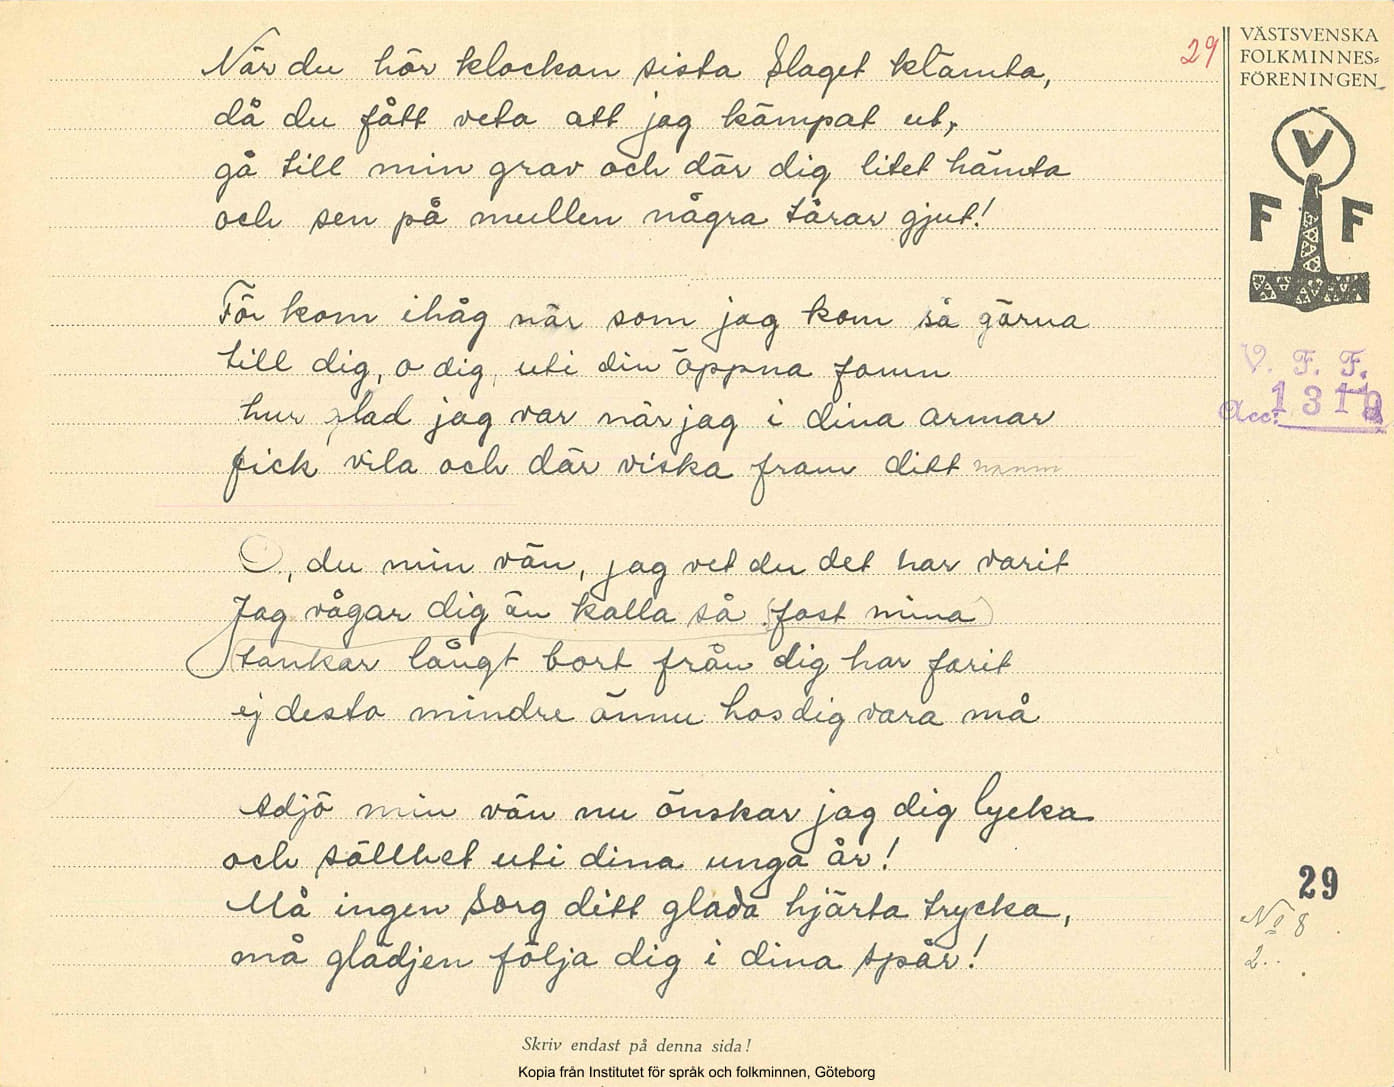 29
VÄSTSVENSKA
FOLKMINNES-
FÖRENINGEN
V
F F
V. F. F.
Acc:
När du hör klockan sista slaget klämta,
då du fått veta att jag kämpat ut,
gå till min grav och där dig litet hämta
och sen på mullen några tårar gjut!
För kom ihåg när som jag kom så gärna
till dig, o dig, uti din öppna famn
hur glad jag var när jag i dina armar
fick vila och där viska fram ditt namn
O, du min vän, jag vet du det har varit
Jag vågar dig än kalla så (fast mina)
tankar långt bort från dig har farit
ej desto mindre ännu hos dig vara må
Adjö min vän nu önskar jag dig lycka
och sällhet uti dina unga år!
Må ingen sorg ditt glada hjärta trycka,
må glädjen följa dig i dina spår!
29
No 8
2.
Skriv endast på denna sida!
Kopia från Institutet för språk och folkminnen, Göteborg